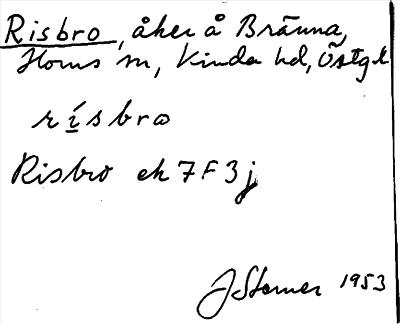 Risbro, åker å Bränna,
Horns sn, Kinda hd, Östgl
rísbro
Risbro ek 7F3j
JSterner 1953